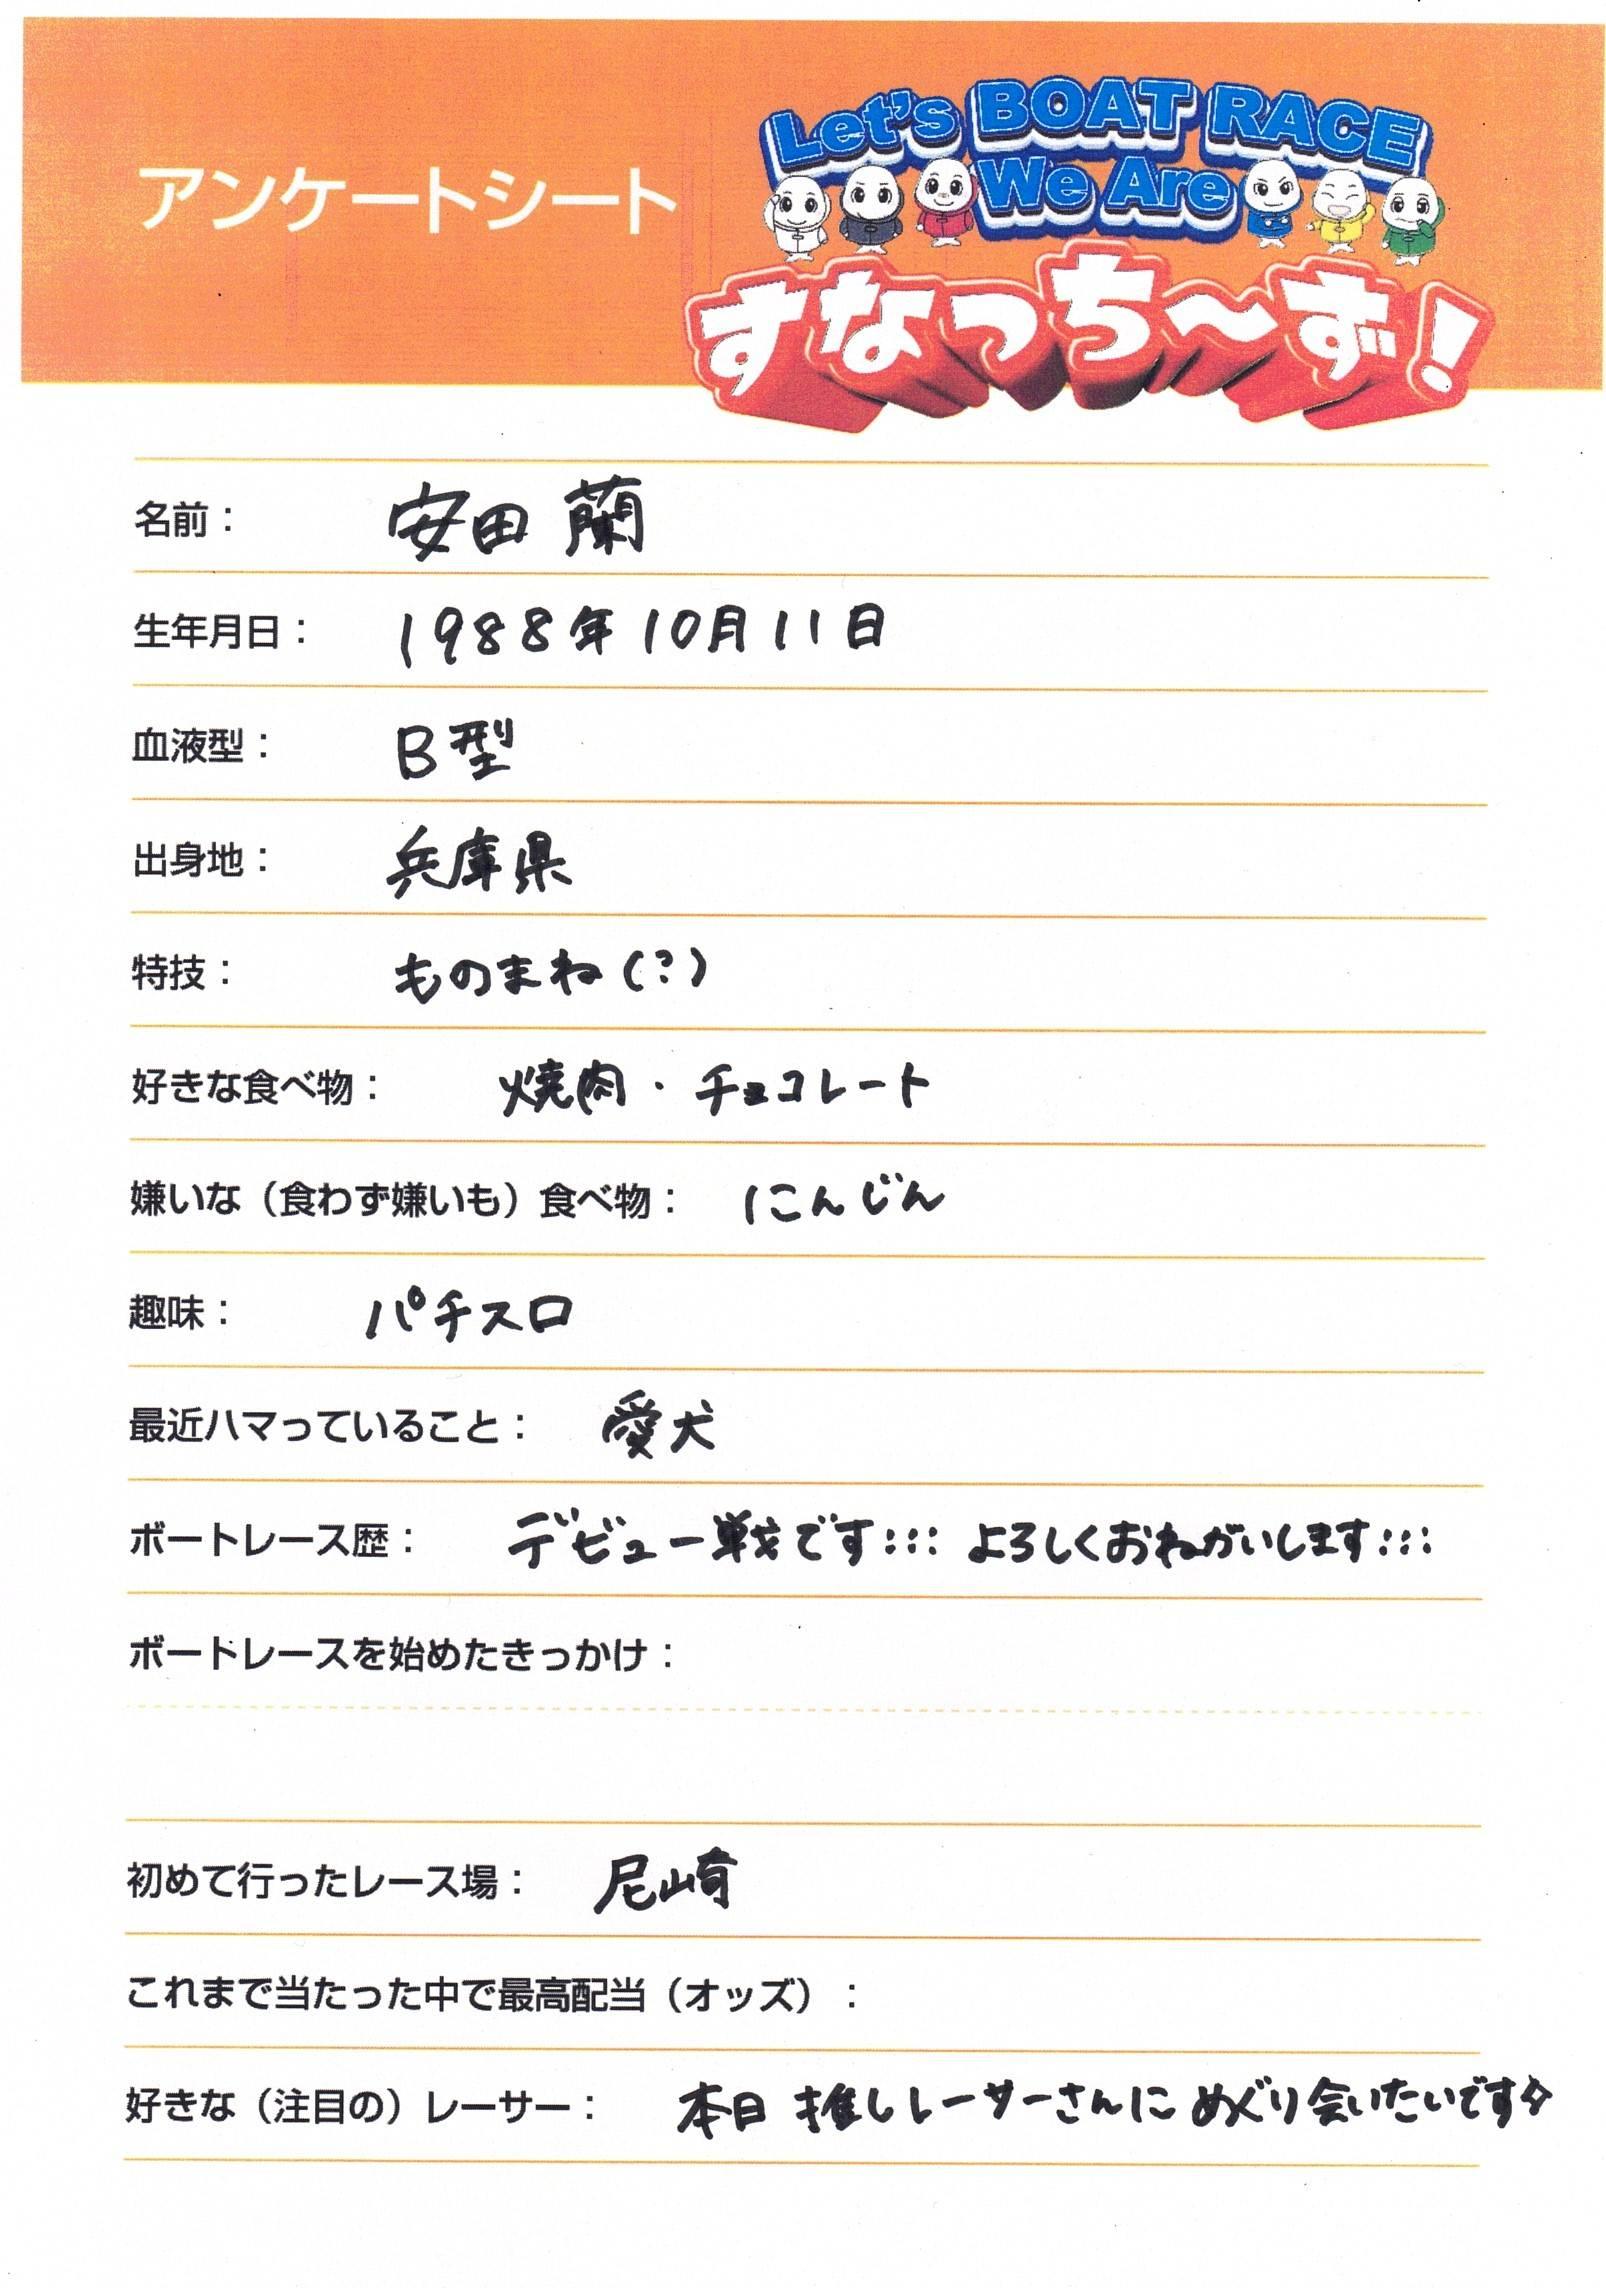 アンケートシート
Let's BOAT RACE
We Are
すなっち〜ず！
名前： 安田 蘭
生年月日： 1988年10月11日
血液型： B型
出身地： 兵庫県
特技： ものまね(?)
好きな食べ物： 焼肉・チョコレート
嫌いな（食わず嫌いも）食べ物： にんじん
趣味： パチスロ
最近ハマっていること： 愛犬
ボートレース歴： デビュー戦です::: よろしくおねがいします:::
ボートレースを始めたきっかけ：
初めて行ったレース場： 尼崎
これまで当たった中で最高配当（オッズ）：
好きな（注目の）レーサー： 本日 推しレーサーさんに めぐり会いたいです☆